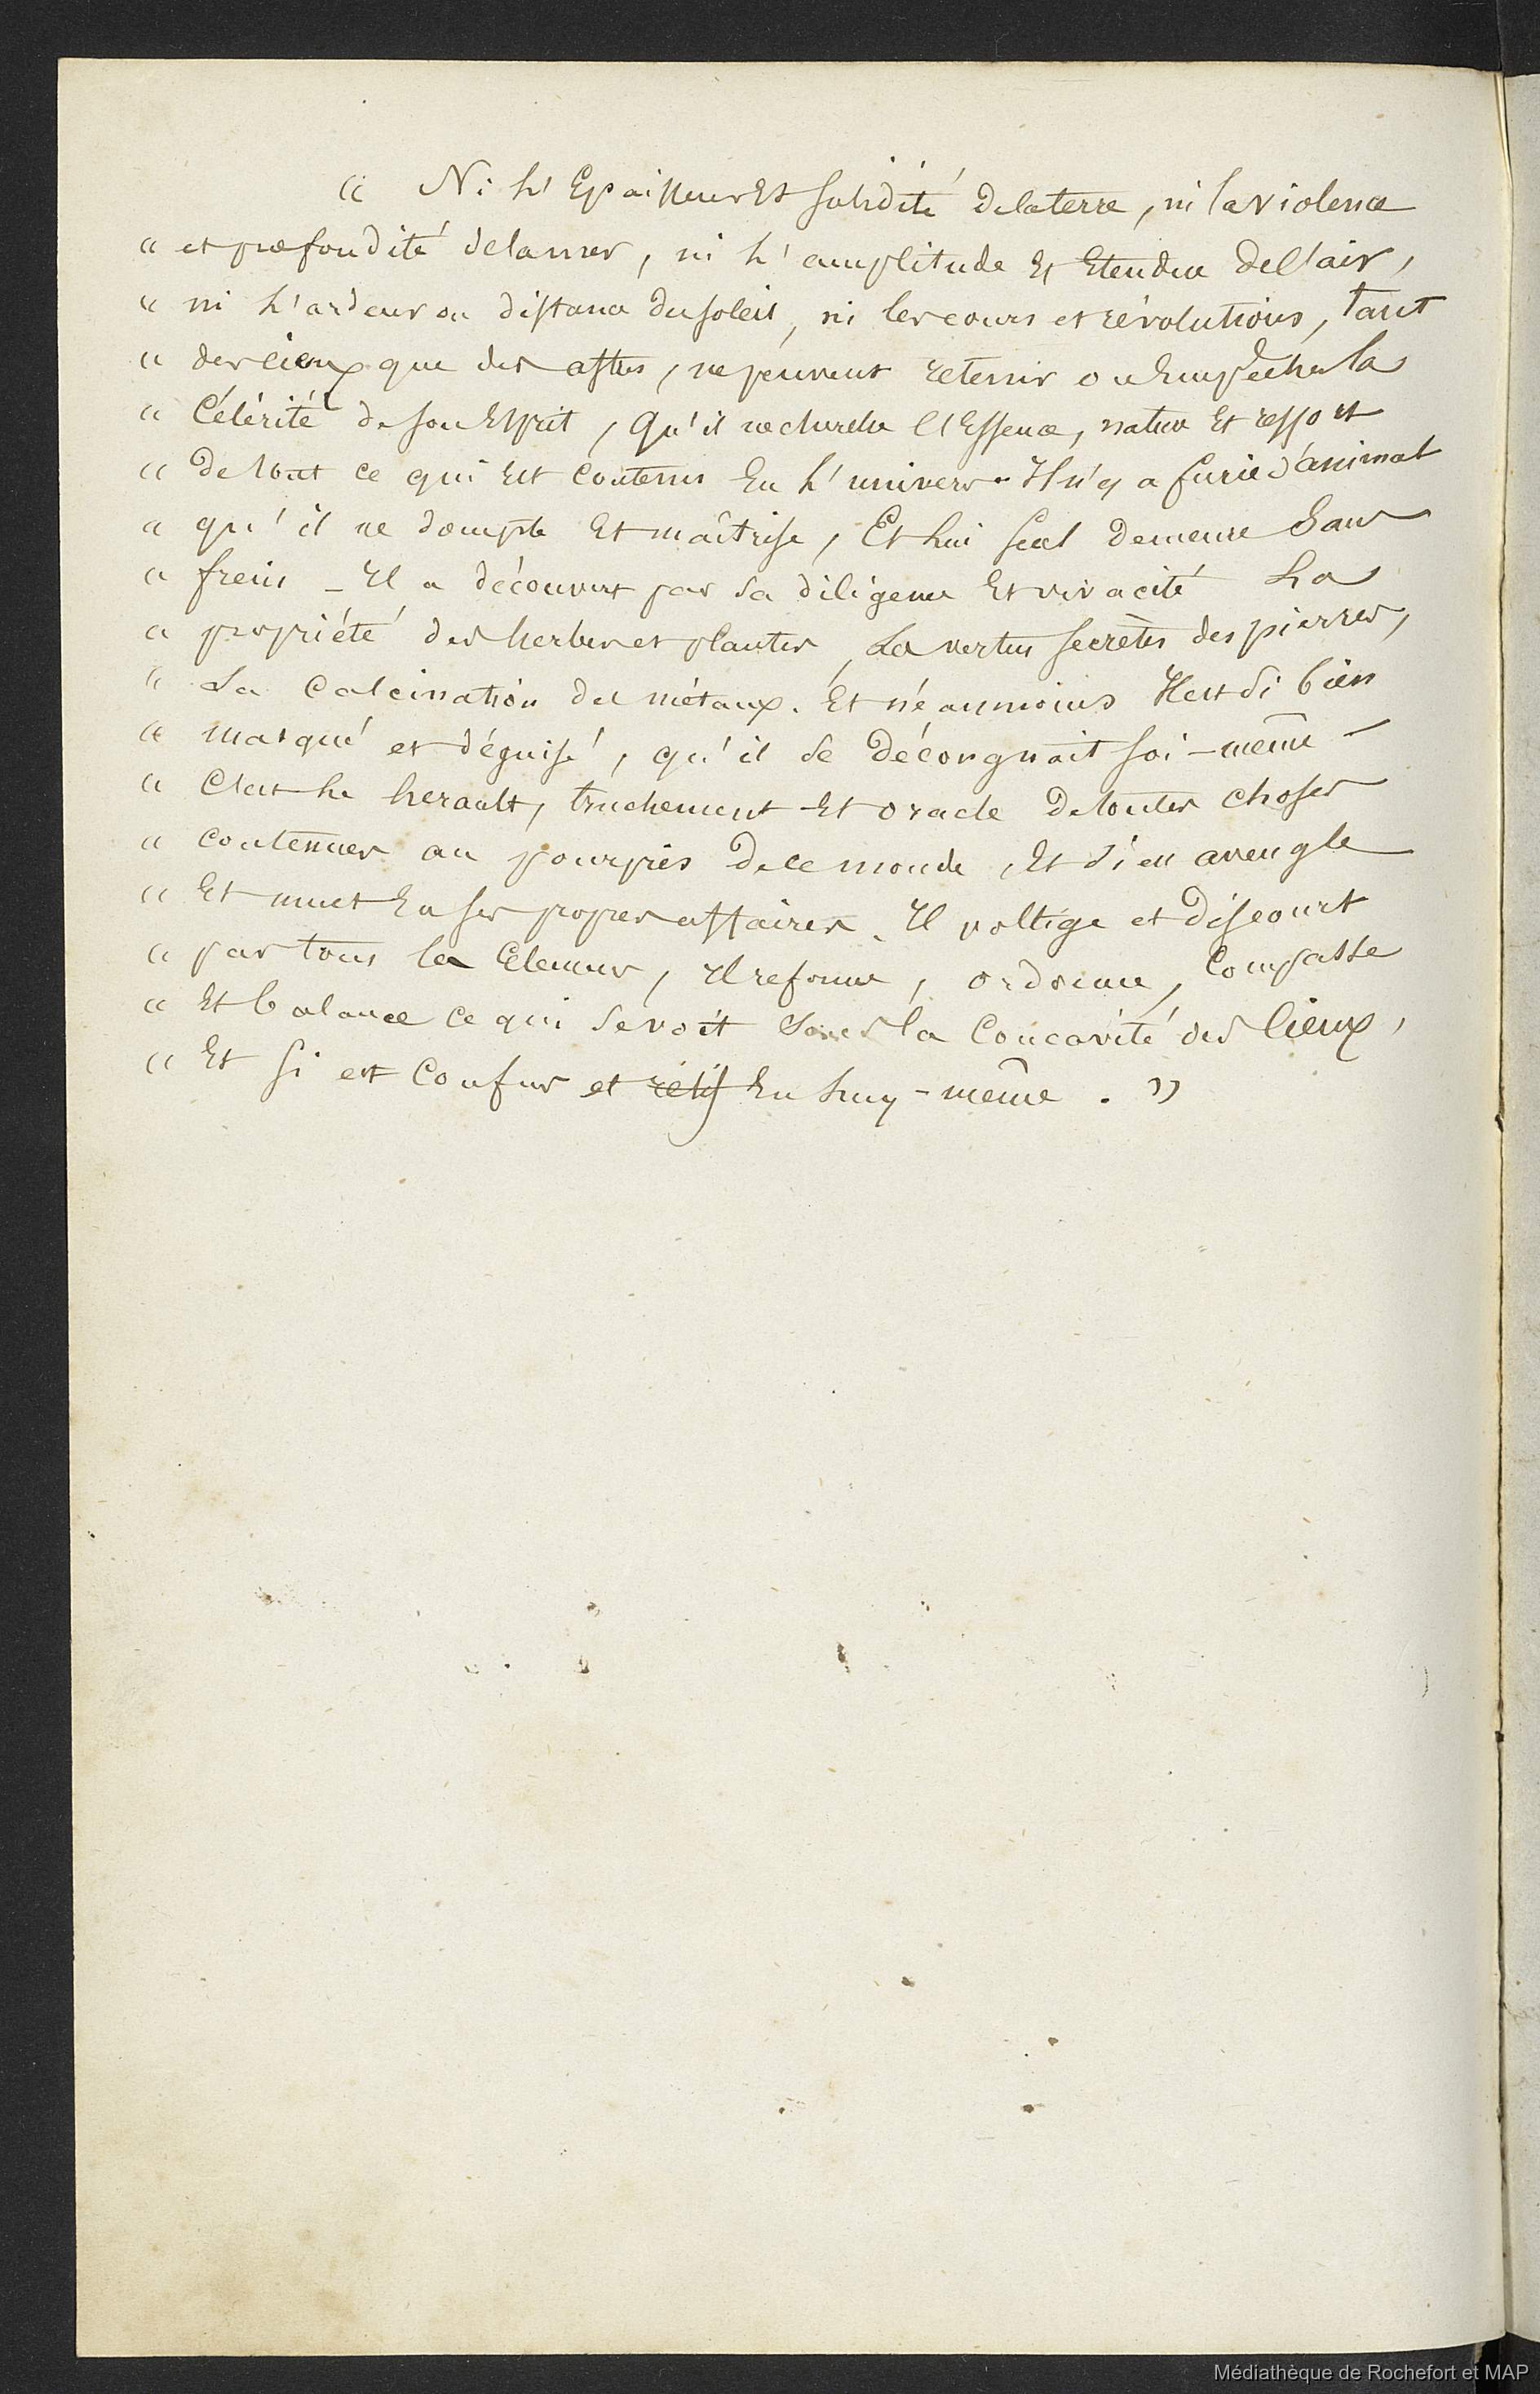 « Ni l'Epaisseur Et solidité de la terre, ni la violence
« et profondité de la mer, ni l'amplitude Et Etendue de l'air,
« ni l'ardeur ou distance du soleil, ni les cours et révolutions, tant
« des cieux que des astres, ne peuvent retenir ou Empêcher la
« Célérité de son Esprit, Qu'il ne cherche l'Essence, nature Et ressort
« de tout ce qui Est Contenu En l'univers. Il n'y a furie d'animal
« qu'il ne dompte Et maîtrise, Et lui seul Demeure Sans
« frein _ Il a découvert par sa diligence Et vivacité La
« propriété des herbes et plantes, La vertu secrète des pierres,
« La Calcination des métaux. Et néanmoins Il est Si bien
« masqué et déguisé, qu'il se décongnoit soi-même _
« C'est le herault, truchement Et oracle de toutes choses
« contenues au pourpris de ce monde, Et Si est aveugle
« Et muet En ses propres affaires. Il voltige et discourt
« par tous les Elemens, Il reforme, ordonne, Compasse
« Et balance ce qui se voit Sous la Concavité des Cieux,
« Et si est Confus et rétif En luy-même. »
Médiathèque de Rochefort et MAP